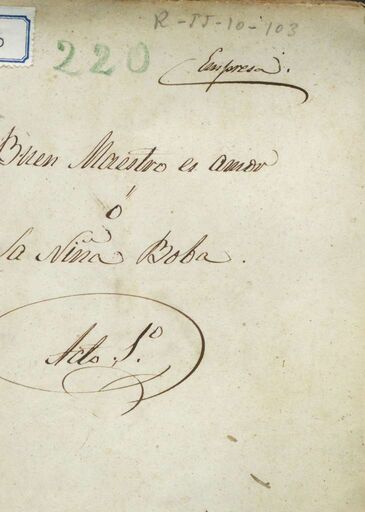 R-II-10-103
220
Empresa.
Buen Maestro es amor
ó
la Niña Boba.
Acto 1º.